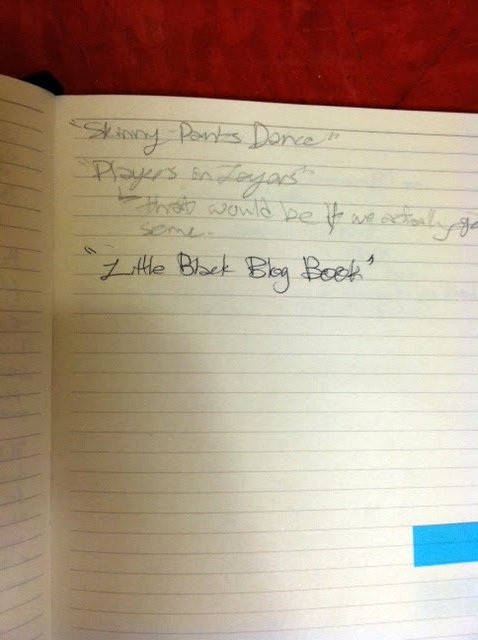 "Skinny Pants Dance"
"Players on Layars"
that would be if we actually
some.
"Little Black Blog Book"